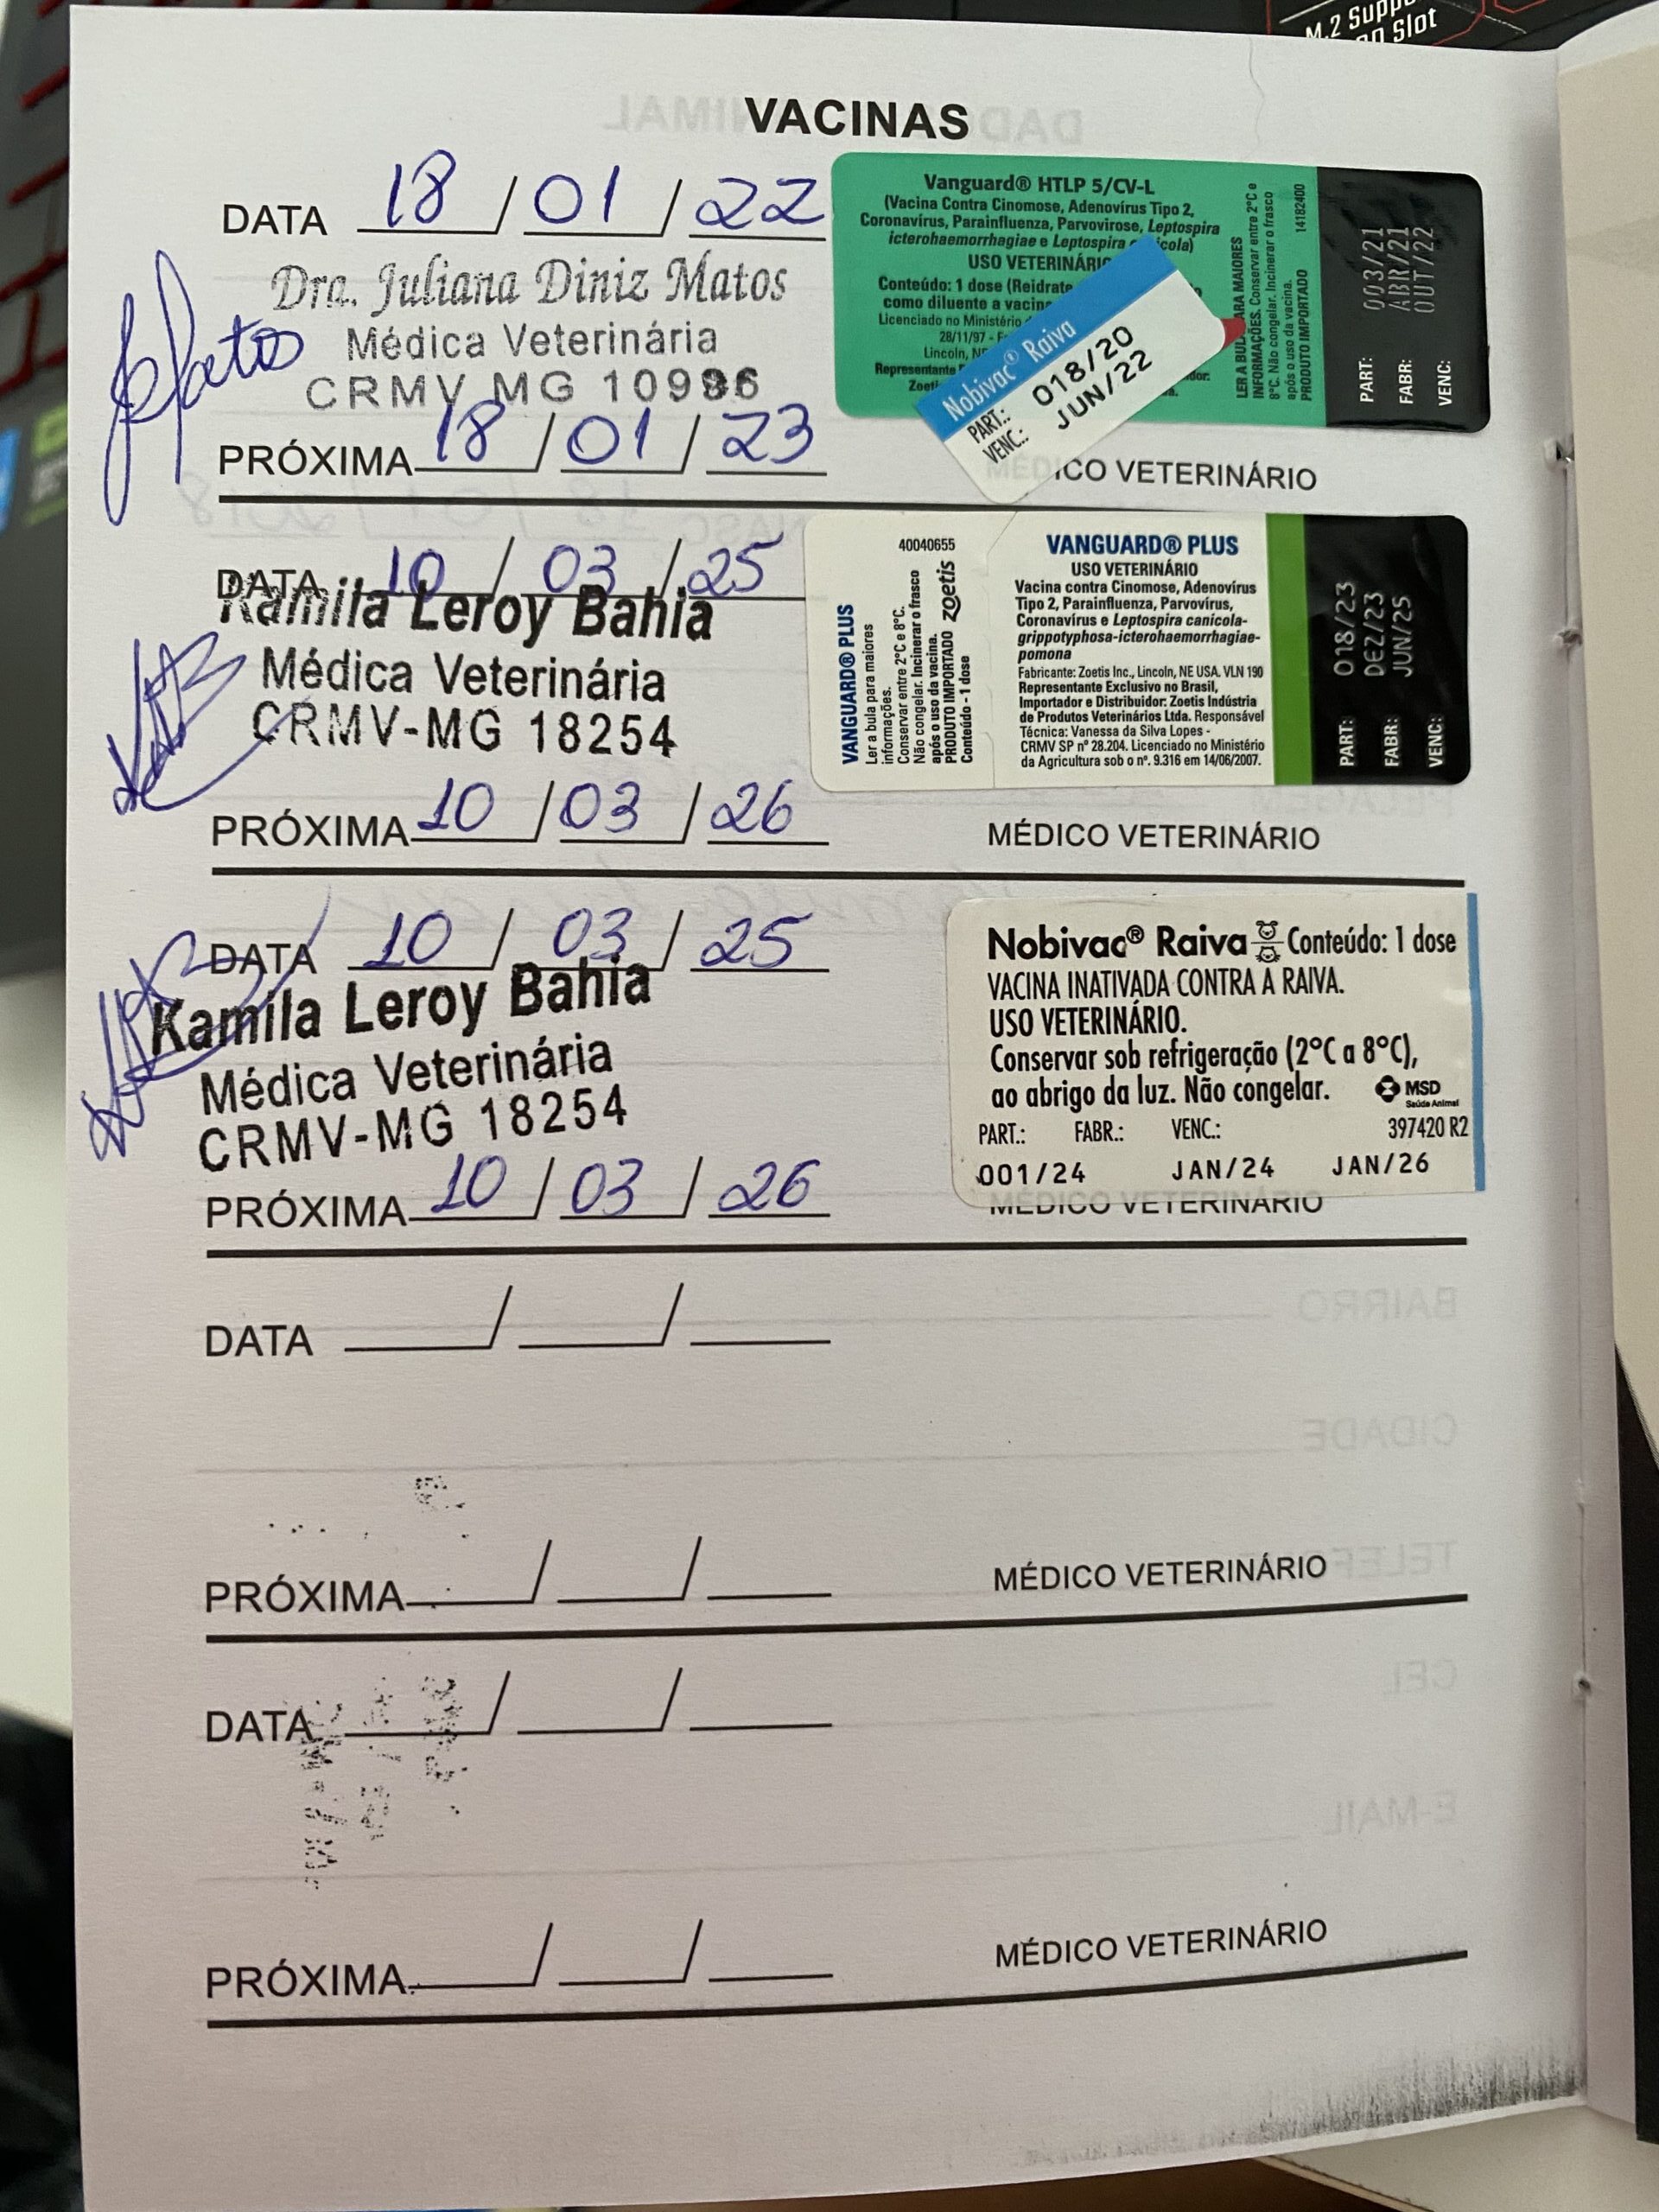 M.2 Supp
on Slot
VACINAS
DATA 18 / 01 / 22
Dra. Juliana Diniz Matos
Médica Veterinária
CRMV MG 10996
PRÓXIMA 18 / 01 / 23
Vanguard® HTLP 5/CV-L
(Vacina Contra Cinomose, Adenovírus Tipo 2,
Coronavírus, Parainfluenza, Parvovirose, Leptospira
icterohaemorrhagiae e Leptospira
USO VETERINÁRIO
Conteúdo: 1 dose (Reidrate
como diluente a vacina
Licenciado no Ministério
28/11/97 -
Lincoln, NE
Representante
LER A BULA PARA MAIORES
INFORMAÇÕES. Conservar entre 2°C e
8°C. Não congelar. Incinerar o frasco
após o uso da vacina.
PRODUTO IMPORTADO 14182400
PART: 003/21
FABR: ABR/21
VENC: OUT/22
Nobivac® Raiva
PART.: 018/20
VENC.: JUN/22
MÉDICO VETERINÁRIO
DATA 10 / 03 / 25
Kamila Leroy Bahia
Médica Veterinária
CRMV-MG 18254
PRÓXIMA 10 / 03 / 26
VANGUARD® PLUS
Ler a bula para maiores
informações.
Conservar entre 2°C e 8°C.
Não congelar. Incinerar o frasco
após o uso da vacina.
PRODUTO IMPORTADO
Conteúdo - 1 dose
40040655
zoetis
VANGUARD® PLUS
USO VETERINÁRIO
Vacina contra Cinomose, Adenovírus
Tipo 2, Parainfluenza, Parvovírus,
Coronavírus e Leptospira canicola-
grippotyphosa-icterohaemorrhagiae-
pomona
Fabricante: Zoetis Inc., Lincoln, NE USA. VLN 190
Representante Exclusivo no Brasil,
Importador e Distribuidor: Zoetis Indústria
de Produtos Veterinários Ltda. Responsável
Técnica: Vanessa da Silva Lopes -
CRMV SP nº 28.204. Licenciado no Ministério
da Agricultura sob o nº. 9.316 em 14/06/2007.
PART: 018/23
FABR: DEZ/23
VENC: JUN/25
MÉDICO VETERINÁRIO
DATA 10 / 03 / 25
Kamila Leroy Bahia
Médica Veterinária
CRMV-MG 18254
PRÓXIMA 10 / 03 / 26
Nobivac® Raiva Conteúdo: 1 dose
VACINA INATIVADA CONTRA A RAIVA.
USO VETERINÁRIO.
Conservar sob refrigeração (2°C a 8°C),
ao abrigo da luz. Não congelar.
MSD
Saúde Animal
PART.: FABR.: VENC.: 397420 R2
001/24 JAN/24 JAN/26
MÉDICO VETERINÁRIO
DATA / /
PRÓXIMA / /
MÉDICO VETERINÁRIO
DATA / /
PRÓXIMA / /
MÉDICO VETERINÁRIO